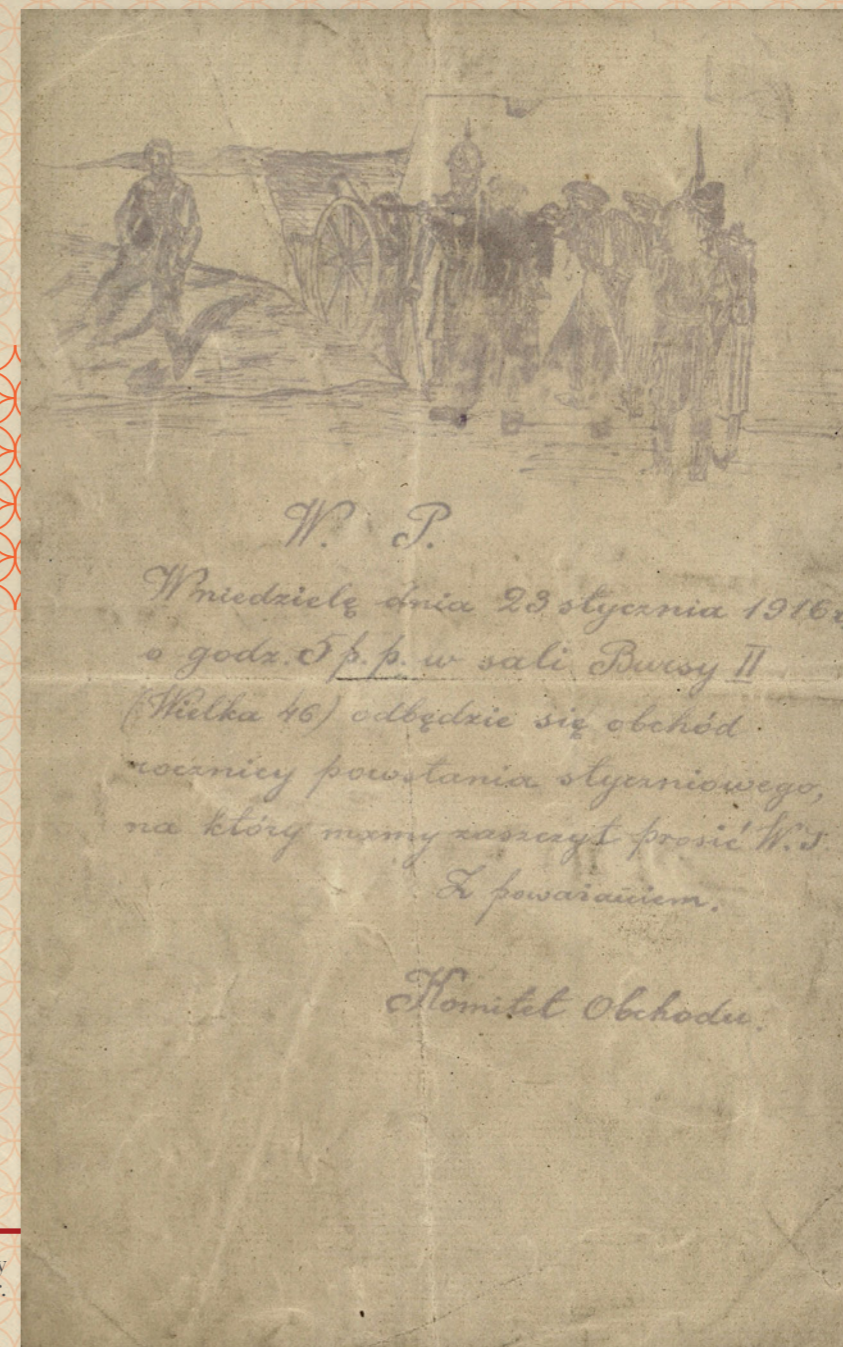 W. P.
W niedzielę dnia 23 stycznia 1916 r
o godz. 5 p. p. w sali Bursy II
(Wielka 46) odbędzie się obchód
rocznicy powstania styczniowego,
na który mamy zaszczyt prosić W.P.
Z poważaniem.
Komitet Obchodu.